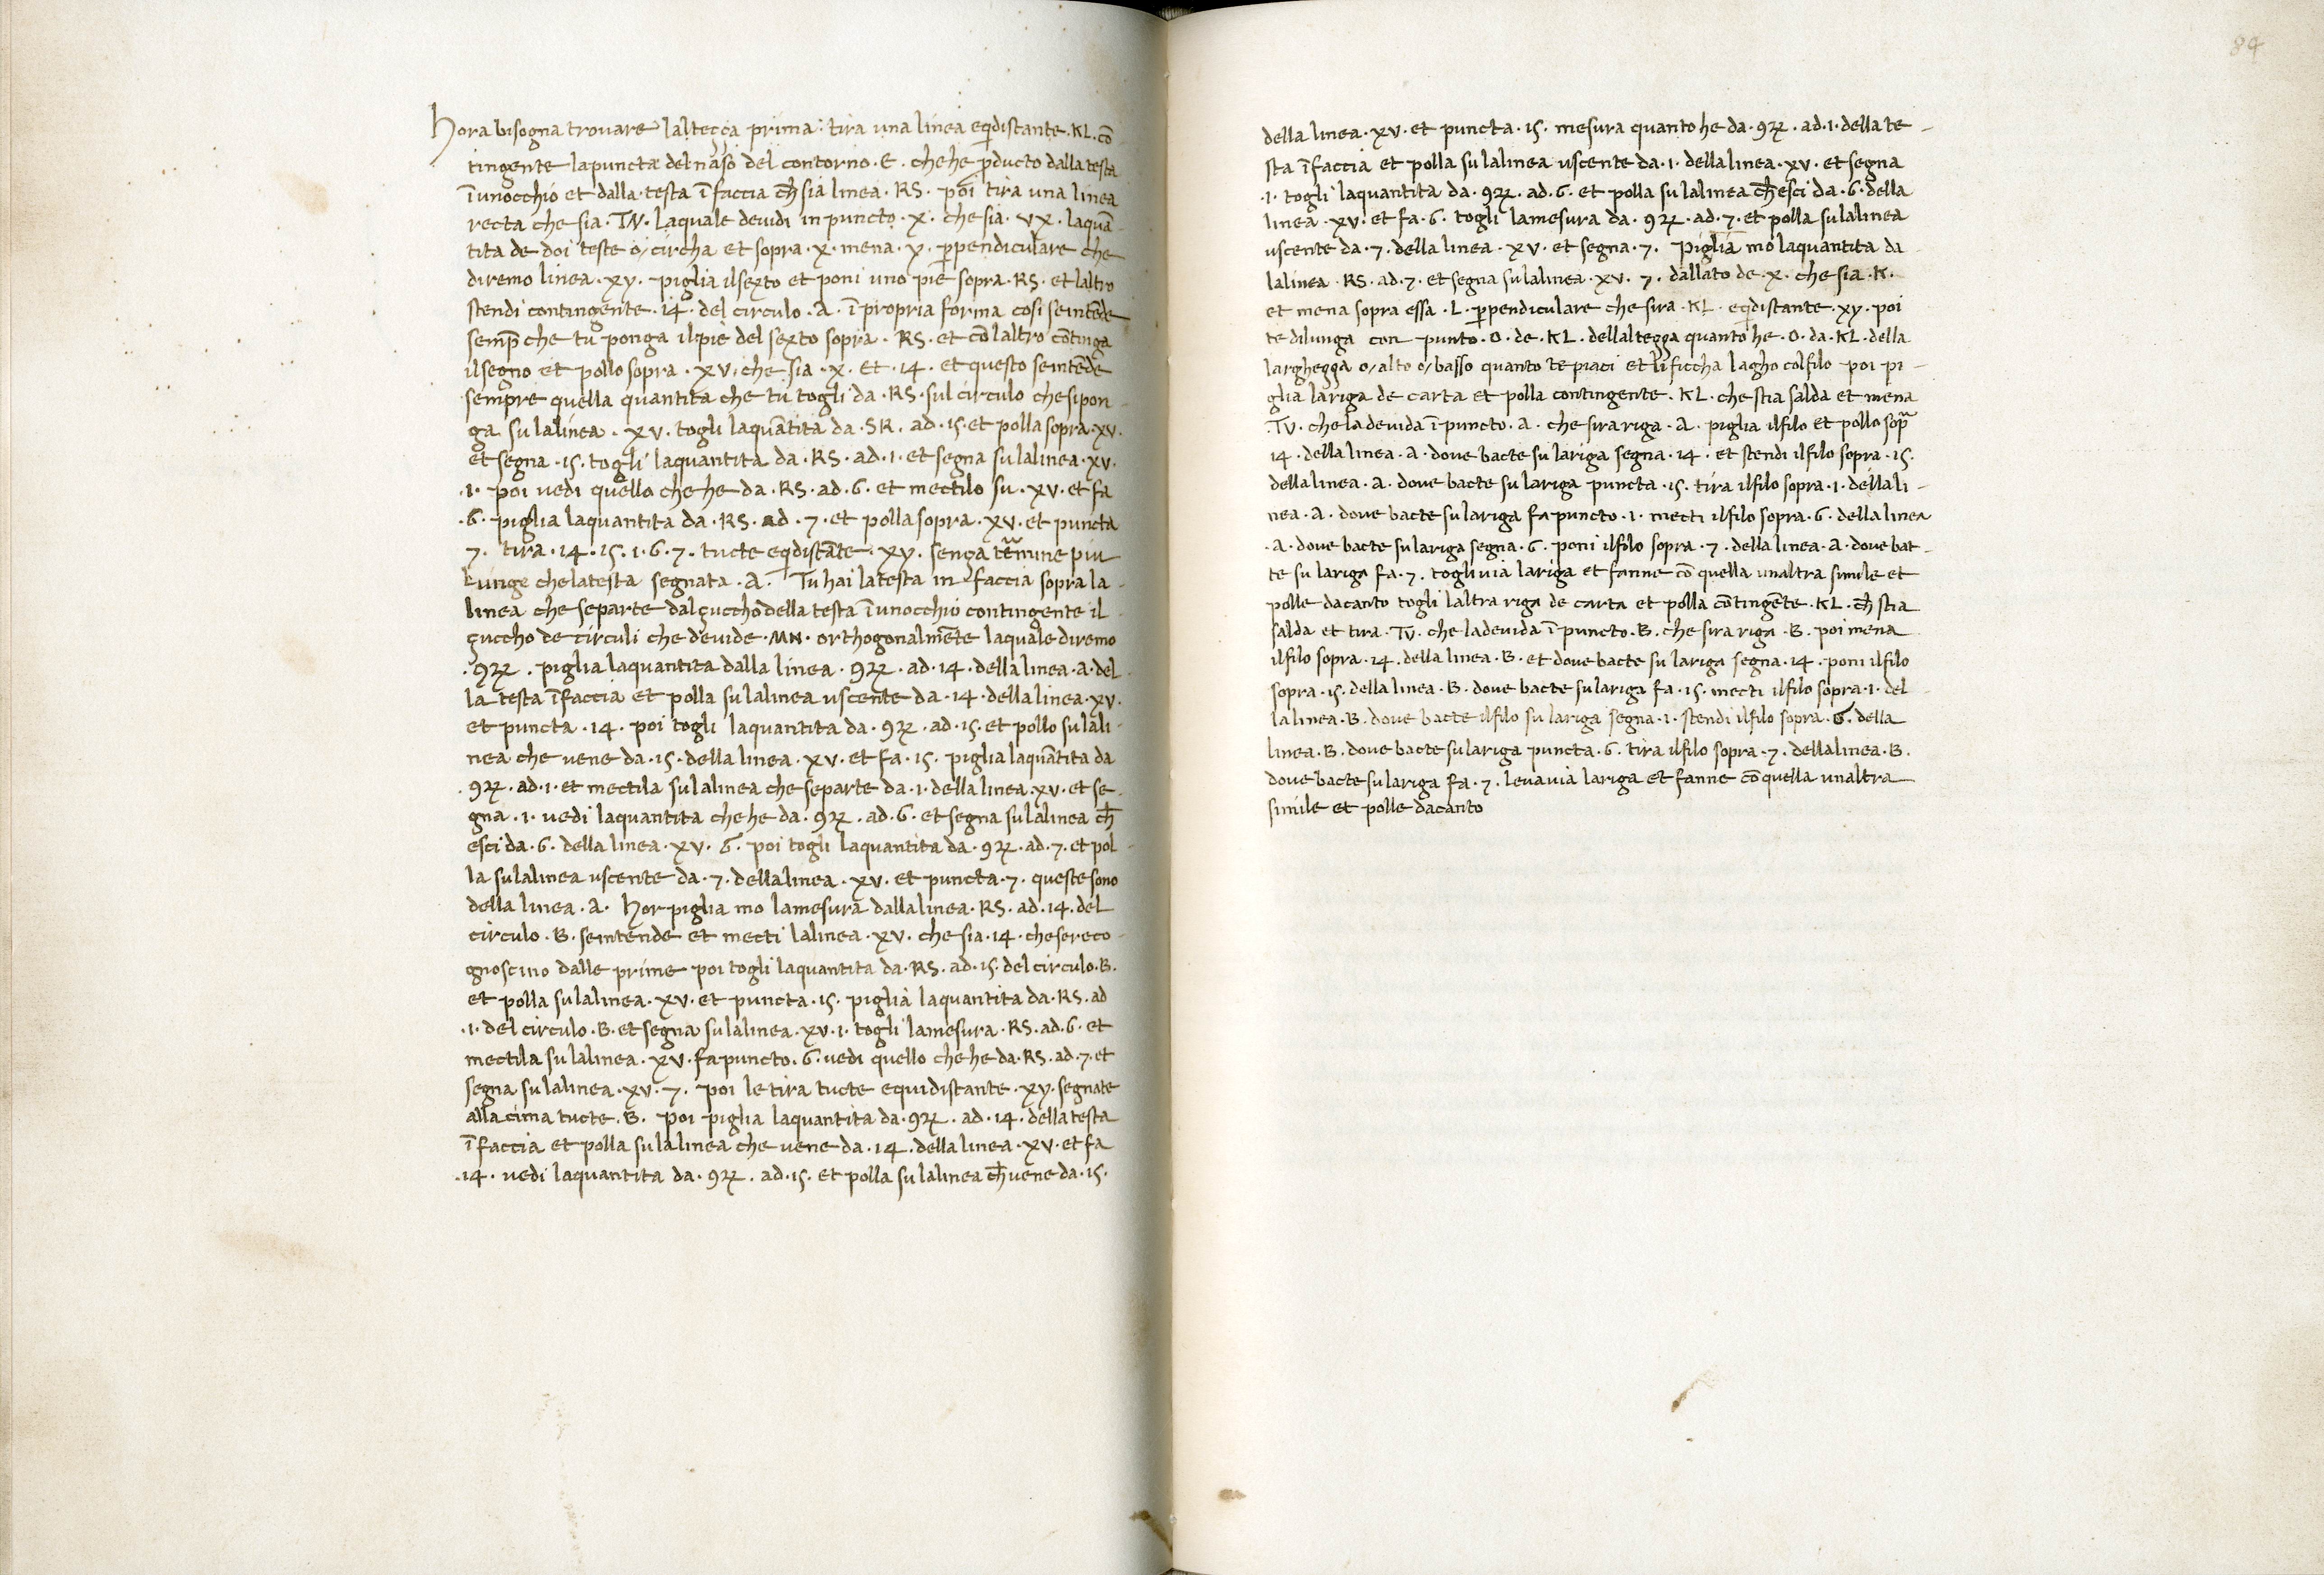 hora bisogna trovare laltecça prima: tira una linea eqdistante .KL. cō
tingente lapuncta del naso del contorno .E. chehe pducto dalla testa
ī unocchio et dalla testa ī faccia ch̄ sia linea .RS. poi tira una linea
recta che sia .TV. laquale devidi in puncto .x. che sia .vx. laquā
tita de doi teste o/ circha et sopra .x. mena .y. ppendiculare che
diremo linea .xy. piglia ilsexto et poni uno pie sopra .RS. et laltro
stendi contingente .14. del circulo .A. ī propria forma cosi seintēde
semp̄ che tu ponga ilpie del sexto sopra .RS. et cō laltro cōtinga
ilsegno et pollo sopra .xv. che sia .x. et .14. et questo seintēde
sempre quella quantita che tu togli da .RS. sul circulo chesipon
ga su lalinea .xv. togli laquātita da .SR. ad .15. et polla sopra .xv.
et segna .15. togli laquantita da .RS. ad .1. et segna su lalinea .xv.
.1. poi vedi quello chehe da .RS. ad .6. et mectilo su .xv. et fa
.6. piglia laquantita da .RS. ad .7. et polla sopra .xv. et puncta
7. tira .14. 15. 1. 6. 7. tucte eqdistāte .xy. sença tēmine piu
Lunge chelatesta segnata .A. Tu hai latesta in faccia sopra la-
linea che separte dalçuccho della testa ī unocchio contingente il
çuccho de circuli che devide .MN. orthogonalmēte laquale diremo
.9ꝝ. piglia laquantita dalla linea .9ꝝ. ad .14. della linea .a. del
la testa ī faccia et polla su lalinea uscente da .14. della linea .xv.
et puncta .14. poi togli laquantita da .9ꝝ. ad .15. et pollo su lali-
nea che vene da .15. della linea .xv. et fa .15. piglia laquātita da
.9ꝝ. ad .1. et mectila su lalinea che separte da .1. della linea .xv. et se-
gna .1. vedi laquantita chehe da .9ꝝ. ad .6. et segna su lalinea ch̄
esci da .6. della linea .xv. 6. poi togli laquantita da .9ꝝ. ad .7. et pol-
la su lalinea uscente da .7. dellalinea .xv. et puncta .7. queste sono
della linea .A. hor piglia mo lamesura dallalinea .RS. ad .14. del
circulo .B. seintende et mecti lalinea .xv. che sia .14. chesereco-
gnoscino dalle prime poi togli laquantita da .RS. ad .15. del circulo .B.
et polla su lalinea .xv. et puncta .15. piglia laquantita da .RS. ad
.1. del circulo .B. et segna su lalinea .xv. 1. togli lamesura .RS. ad .6. et
mectila su lalinea .xv. fa puncto .6. vedi quello chehe da .RS. ad .7. et
segna su lalinea .xv. 7. poi le tira tucte equidistante .xy. segnate
alla cima tucte .B. poi piglia laquantita da .9ꝝ. ad .14. della testa
ī faccia et polla su lalinea che vene da .14. della linea .xv. et fa
.14. vedi laquantita da .9ꝝ. ad .15. et polla su lalinea ch̄ vene da .15.
84
della linea .xv. et puncta .15. mesura quanto he da .9ꝝ. ad .1. della te-
sta ī faccia et polla su lalinea uscente da .1. dellalinea .xv. et segna
.1. togli laquantita da .9ꝝ. ad .6. et polla su lalinea ch̄ esci da .6. della
linea .xv. et fa .6. togli lamesura da .9ꝝ. ad .7. et polla su lalinea
uscente da .7. della linea .xv. et segna .7. piglia mo laquantita da
lalinea .RS. ad .7. et segna su lalinea .xv. 7. dallato de .x. che sia .K.
et mena sopra essa .L. ppendiculare che sira .KL. eqdistante .xy. poi
te dilunga con punto .O. de .KL. dellaltegga quanto he .O. da .KL. della
larghegga o/ alto o/ basso quanto te piaci et li ficcha lagho colfilo poi pi-
glia lariga de carta et polla contingente .KL. che stia salda et mena
.TV. che la devida ī puncto .A. che sira riga .A. piglia ilfilo et pollo sopr̄a
14. della linea .A. dove bacte su lariga segna .14. et stendi ilfilo sopra .15.
dellalinea .A. dove bacte su lariga puncta .15. tira ilfilo sopra .1. dellali-
nea .A. dove bacte su lariga fa puncto .1. mecti ilfilo sopra .6. della linea
.A. dove bacte su lariga segna .6. poni ilfilo sopra .7. della linea .A. dove bat-
te su lariga fa .7. togli via lariga et fanne cō quella unaltra simile et
polle dacanto togli laltra riga de carta et polla cōtingēte .KL. ch̄ stia
salda et tira .TV. che ladevida ī puncto .B. che sira riga .B. poi mena
ilfilo sopra .14. della linea .B. et dove bacte su lariga segna .14. poni ilfilo
sopra .15. della linea .B. dove bacte su lariga fa .15. mecti ilfilo sopra .1. del
lalinea .B. dove bacte ilfilo su lariga segna .1. stendi ilfilo sopra .6. della
linea .B. dove bacte su lariga puncta .6. tira ilfilo sopra .7. dellalinea .B.
dove bacte su lariga fa .7. leva via lariga et fanne cō quella unaltra
simile et polle dacanto